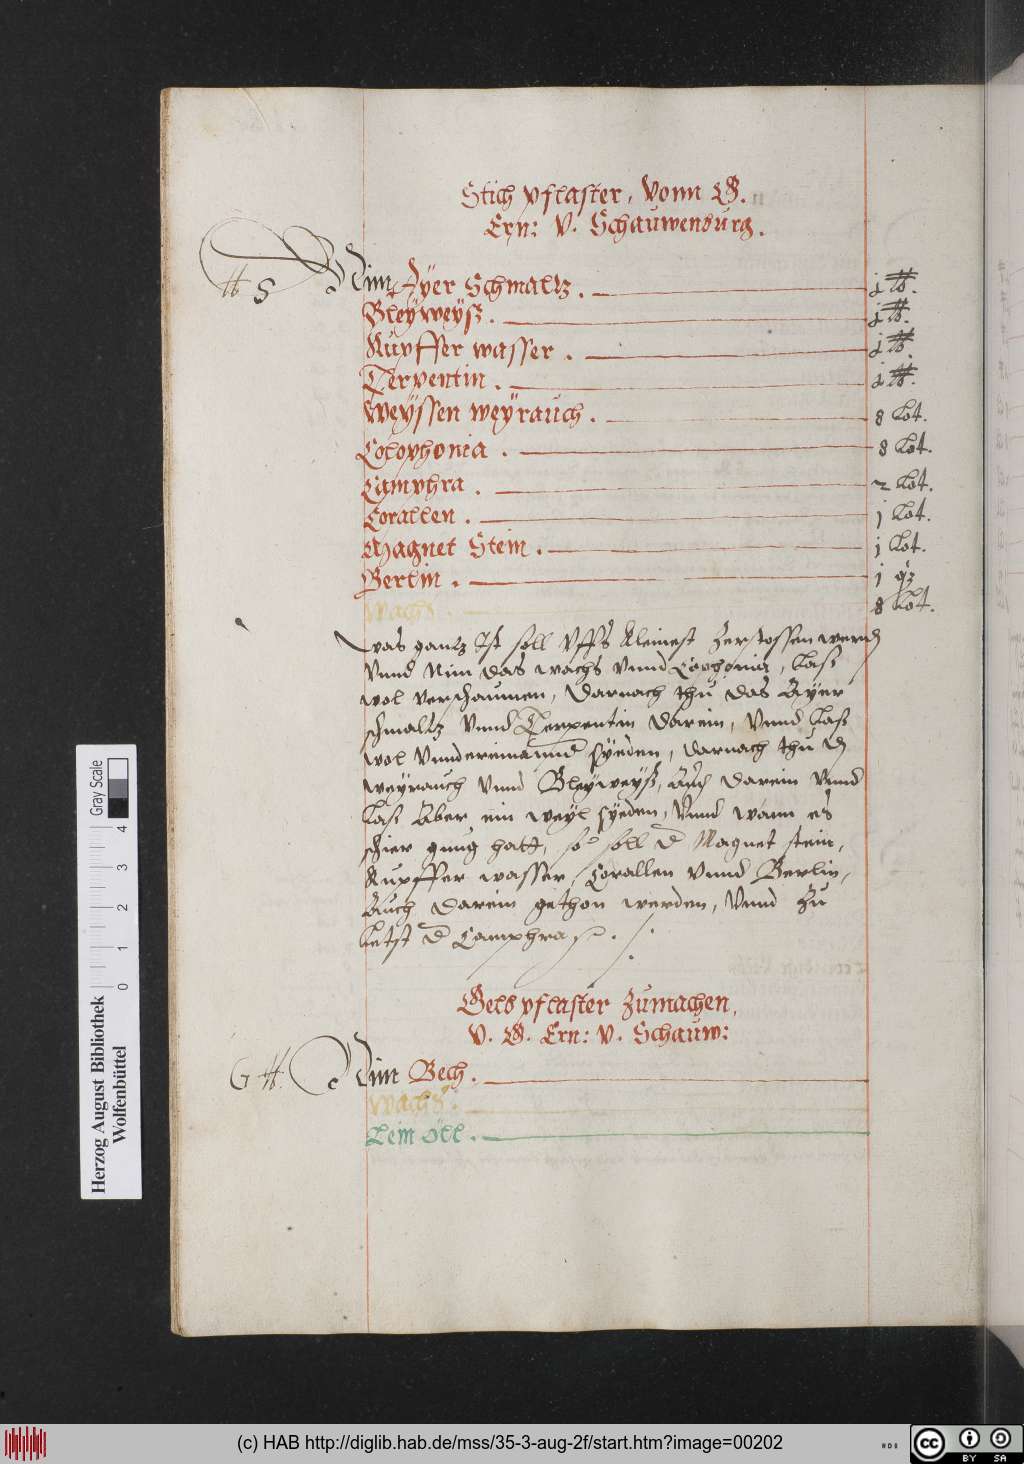 Stich pflaster, Vonn G.
Ern: V. Schauwenburg.
Nim Ayer Schmaltz. j ℔.
S
Bleyweyß. j ℔.
Kupffer wasser. j ℔.
Terpentin. j ℔.
Weyssen weyrauch. 8 Lot.
Colophonia. 8 Lot.
Camphra. 2 Lot.
Corallen. j Lot.
Magnet Stein. j Lot.
Berlin. j
Wachs. 8 Lot.
was gantz Ist soll Vffs kleinest Zerstossen werden
Vnnd Nim das wachs Vnnd Colophonia, Laß
wol verschaumen, Darnach thu das Ayer
schmaltz Vnnd Terpentin darein, Vnnd Laß
wol Vnndereinannd syeden, Darnach thu
weyrauch Vnnd Bleyweyß, Auch darein Vnnd
Laß Aber ein weyl syeden, Vnnd wann es
schier gnug hatt, so soll d Magnet stein,
Kupffer wasser, Corallen Vnnd Berlin,
Auch darein gethon werden, Vnnd Zu
Letst d Camphra
Gelb pflaster Zumachen,
V. G. Ern: V. Schauw:
G ℔. Nim Bech.
Wachs.
Lein öll.
Herzog August Bibliothek
Wolfenbüttel
Gray Scale
0 1 2 3 4
(c) HAB http://diglib.hab.de/mss/35-3-aug-2f/start.htm?image=00202
HAB
cc
BY SA